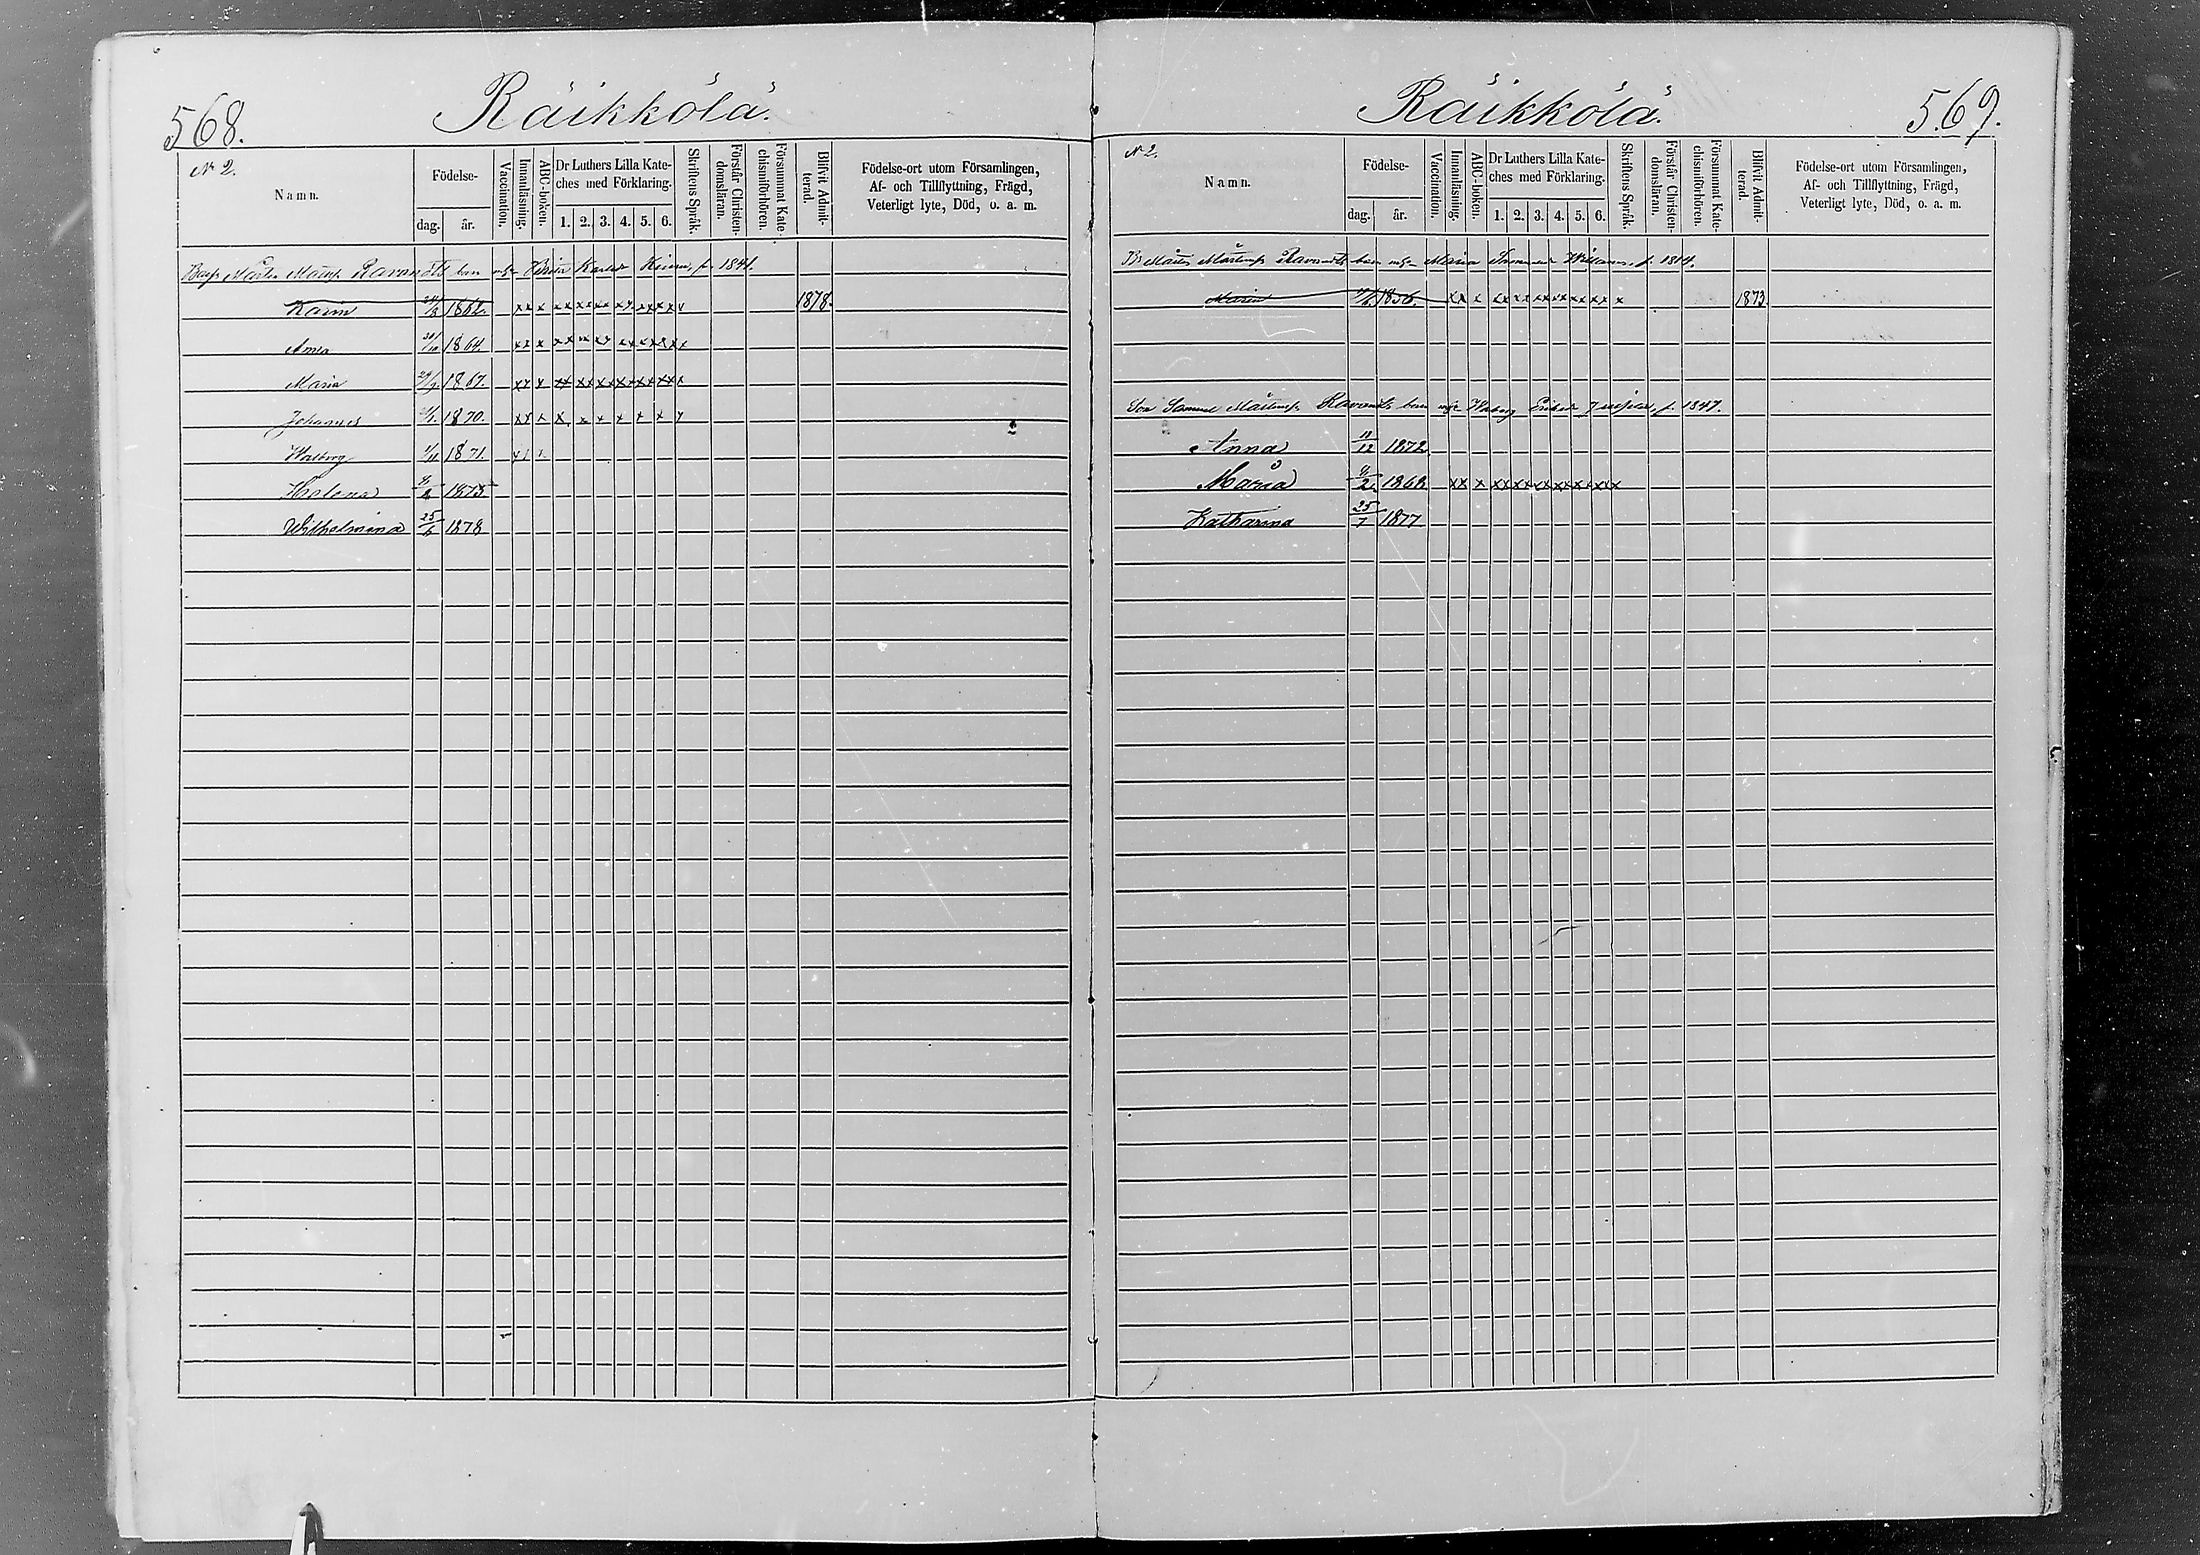 568.
Räikkölä.
N 2.
Namn.
Födelse-
dag. år.
Vaccination.
Innanläsning.
ABC-boken.
Dr Luthers Lilla Kate-
ches med Förklaring.
1. 2. 3. 4. 5. 6.
Skriftens Språk.
Förstår Christen-
domsläran.
Försummat Kate-
chismiförhören.
Blifvit Admit-
terad.
Födelse-ort utom Församlingen,
Af- och Tillflyttning, Frägd,
Veterligt lyte, Död, o. a. m.
Mårts barn f. 1841.
Karin 1862. xx x xx xx xx xx xx xx x 1878.
Anna 1864. xx x xx xx xx xx xx xx
Maria 1867. xx x xx xx xx xx xx xx x
Johannes 1870. xx x x x x x x x x
Walborg 1/11 1871.
Helena 1873
Wilhelmina 1878
569.
Räikkölä.
N 2.
Namn.
Födelse-
dag. år.
Vaccination.
Innanläsning.
ABC-boken.
Dr Luthers Lilla Kate-
ches med Förklaring.
1. 2. 3. 4. 5. 6.
Skriftens Språk.
Förstår Christen-
domsläran.
Försummat Kate-
chismiförhören.
Blifvit Admit-
terad.
Födelse-ort utom Församlingen,
Af- och Tillflyttning, Frägd,
Veterligt lyte, Död, o. a. m.
Mårts Mårtensp barn Maria f. 1814.
1856. xx x xx xx xx xx xx xx x 1873.
Son Samuel Mårtensp barn f. 1847.
Anna 1872
Maria 1868 xx x xx xx xx xx xx xx
Katharina 25/7 1877